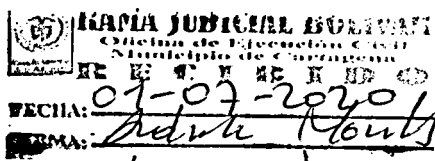 RAMA JUDICIAL BOLIVAR
Oficina de Ejecución Civil
Municipio de Cartagena
RECIBIDO
FECHA: 01-07-2020
FIRMA: